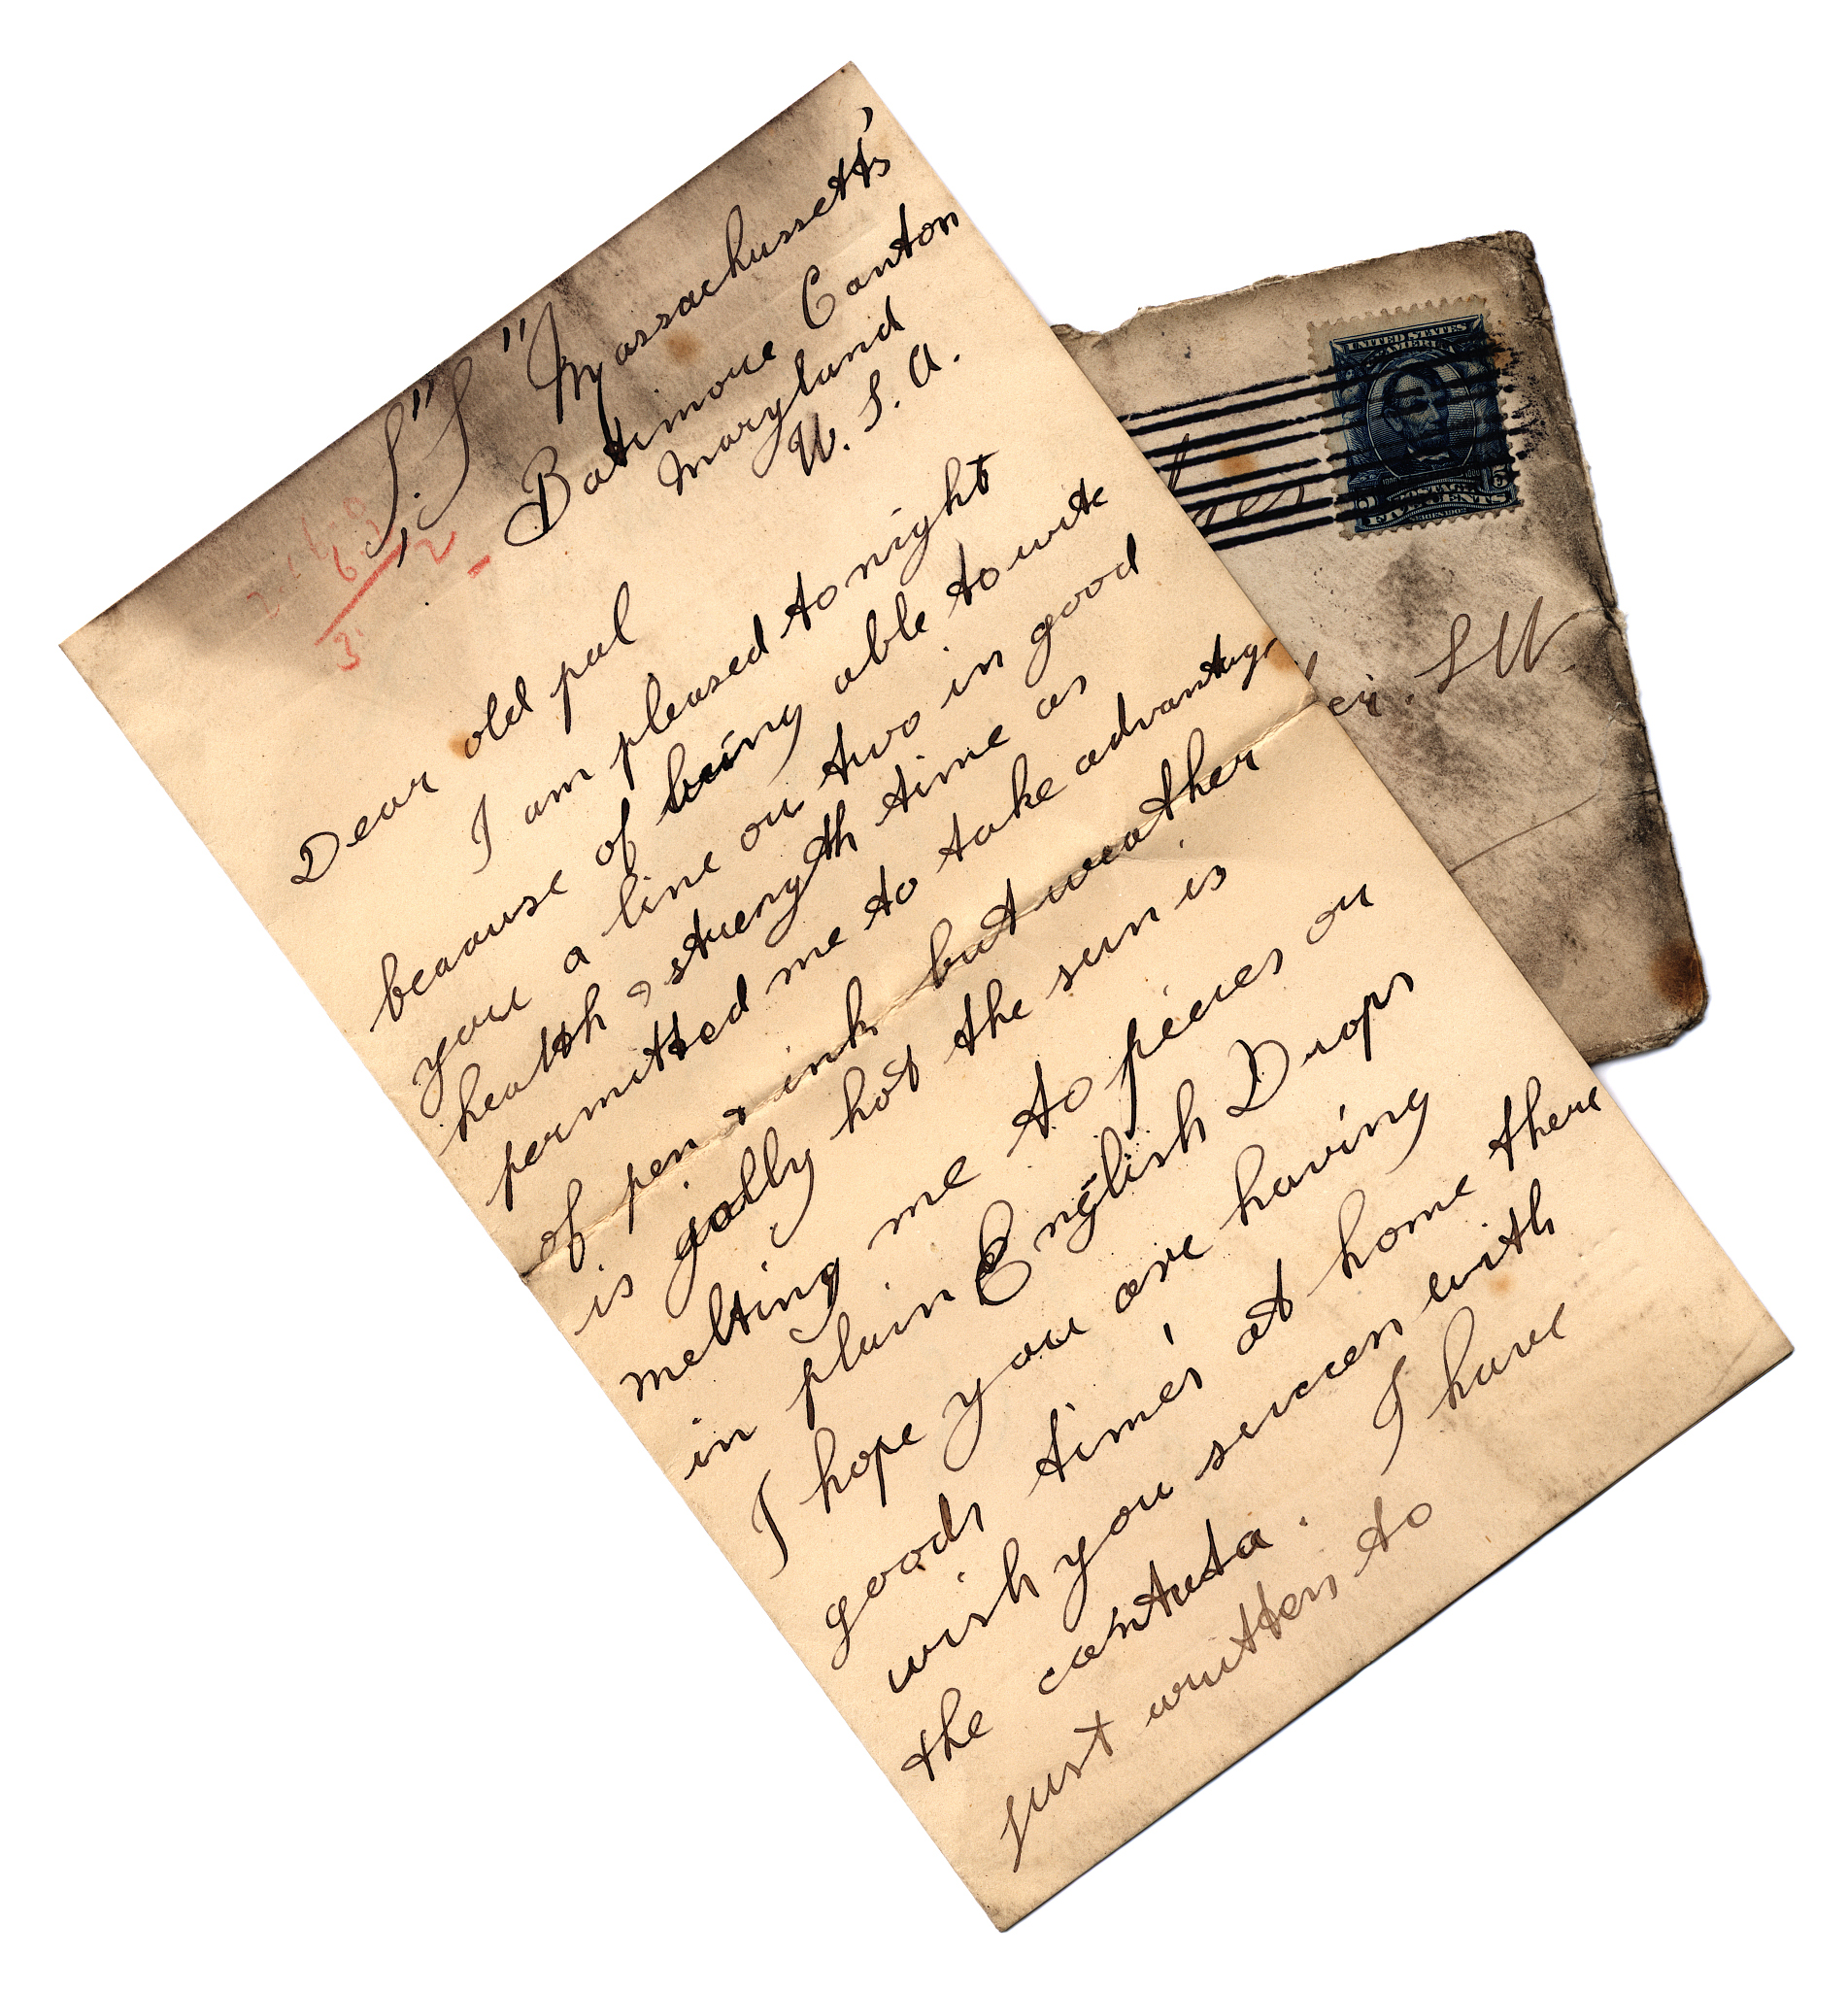 S."S "Massachussetts'
Batimore Canton
Maryland
U. S. A.
Dear old pal
I am pleased to night
because of being able to write
you a line or two in good
health & strength time as
permitted me to take advantage
of pen & ink but weather
is jolly hot the sun is
melting me to pieces or
in plain English Drops
I hope you are having
goods times at home there
wish you success with
the cantata. I have
just written to
6
2
3
UNITED STATES
OF AMERICA
5 5
POSTAGE
FIVE CENTS
SERIES 1902
S W.